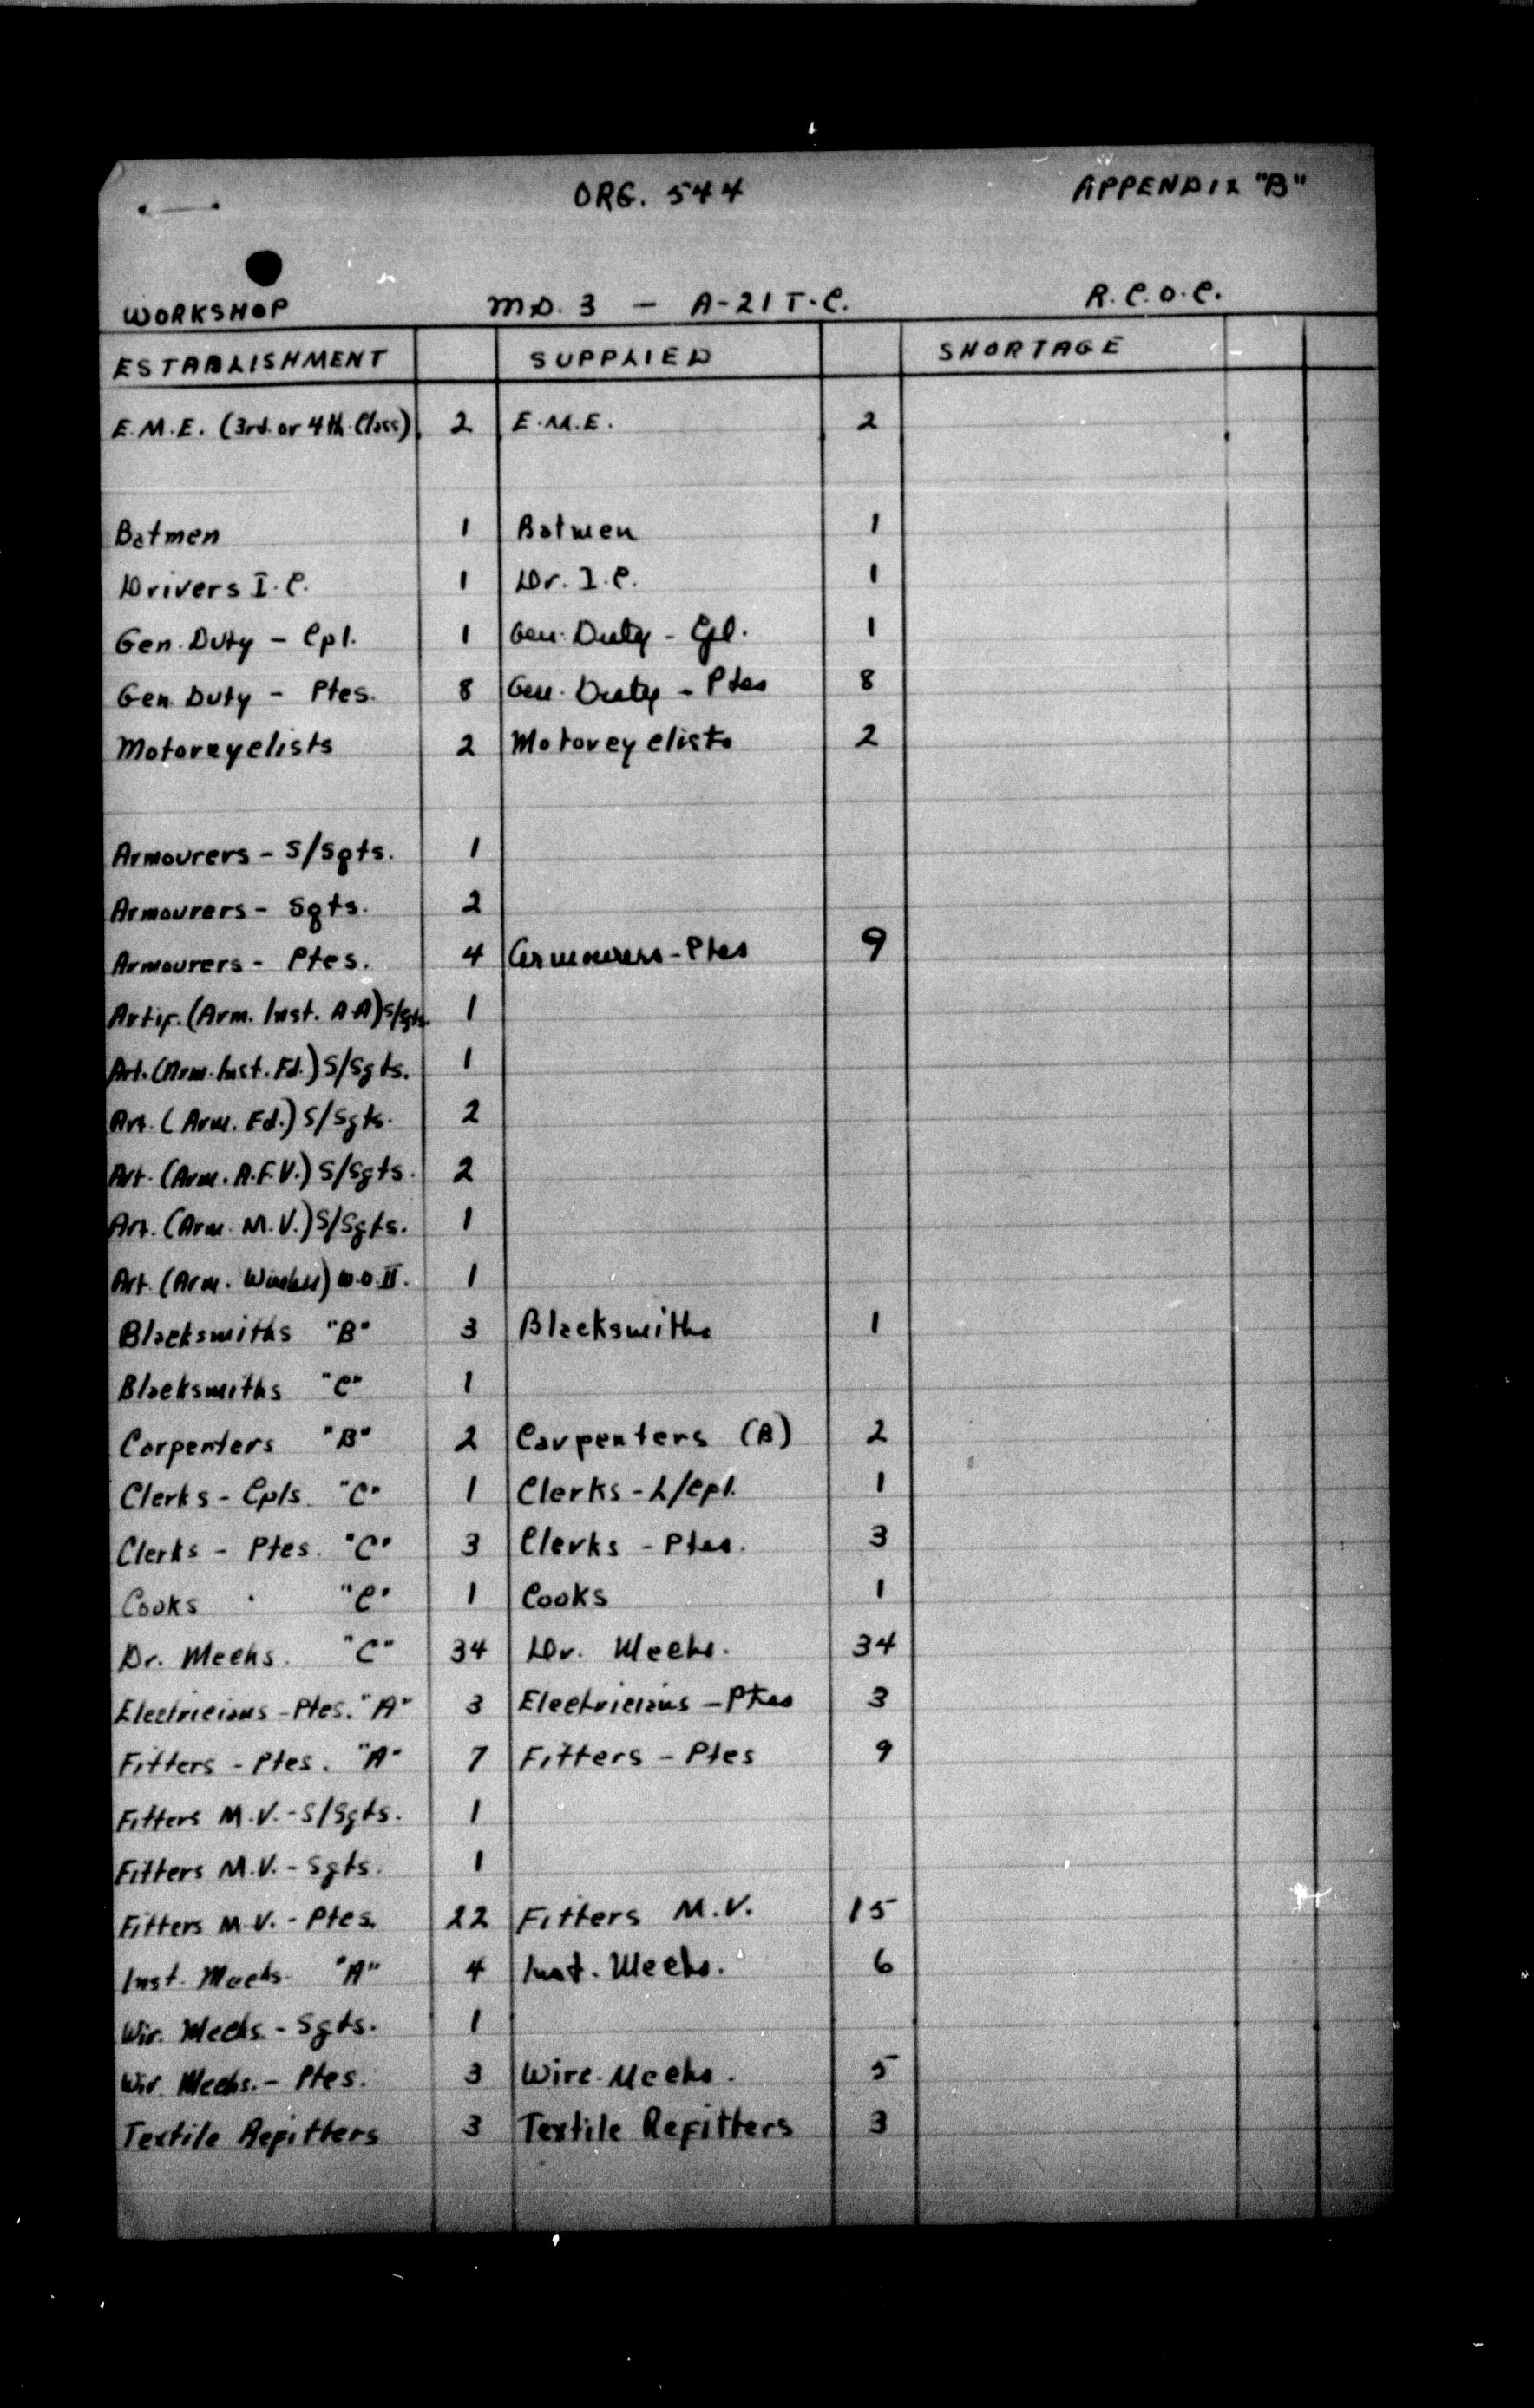 ORG. 544 APPENDIX "B"
WORKSHOP M.D. 3 - A-21 T.C. R.C.O.C.
ESTABLISHMENT SUPPLIED SHORTAGE
E.M.E. (3rd. or 4th. Class) 2 E.M.E. 2
Batmen 1 Batmen 1
Drivers I.C. 1 Dr. I.C. 1
Gen. Duty - Cpl. 1 Gen. Duty - Cpl. 1
Gen. Duty - Ptes. 8 Gen. Duty - Ptes 8
Motorcyclists 2 Motorcyclists 2
Armourers - S/Sgts. 1
Armourers - Sgts. 2
Armourers - Ptes. 4 Armourers - Ptes 9
Artif. (Arm. Inst. A.A) S/Sgts. 1
Art. (Arm. Inst. Fd.) S/Sgts. 1
Art. (Arm. Fd.) S/Sgts. 2
Art. (Arm. A.F.V.) S/Sgts. 2
Art. (Arm. M.V.) S/Sgts. 1
Art. (Arm. Wireless) W.O.II. 1
Blacksmiths "B" 3 Blacksmiths 1
Blacksmiths "C" 1
Carpenters "B" 2 Carpenters (B) 2
Clerks - Cpls. "C" 1 Clerks - L/Cpl. 1
Clerks - Ptes. "C" 3 Clerks - Ptes. 3
Cooks "C" 1 Cooks 1
Dr. Mechs. "C" 34 Dr. Mechs. 34
Electricians - Ptes. "A" 3 Electricians - Ptes 3
Fitters - Ptes. "A" 7 Fitters - Ptes 9
Fitters M.V. - S/Sgts. 1
Fitters M.V. - Sgts. 1
Fitters M.V. - Ptes. 22 Fitters M.V. 15
Inst. Mechs. "A" 4 Inst. Mechs. 6
Wir. Mechs. - Sgts. 1
Wir. Mechs. - Ptes. 3 Wire. Mechs. 5
Textile Refitters 3 Textile Refitters 3